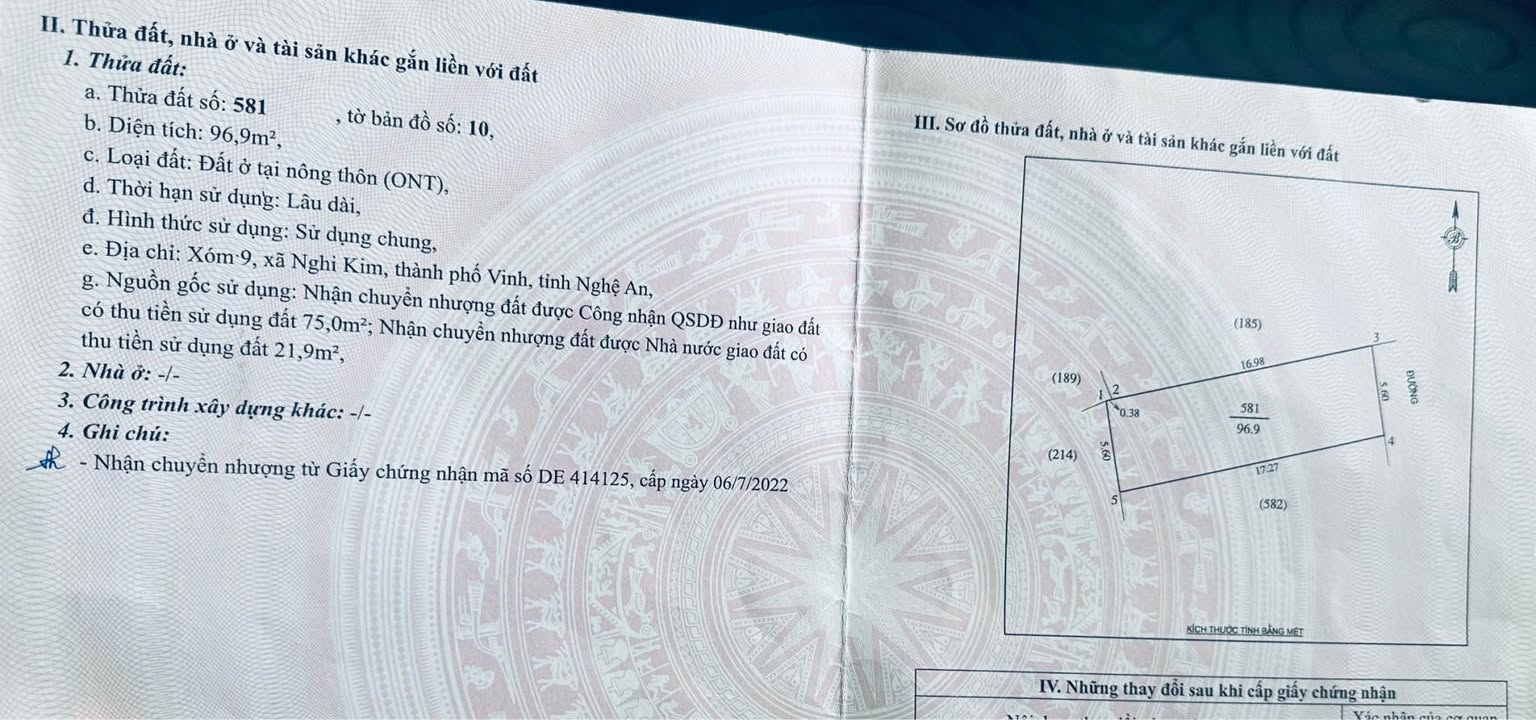 II. Thửa đất, nhà ở và tài sản khác gắn liền với đất
1. Thửa đất:
a. Thửa đất số: 581 , tờ bản đồ số: 10,
b. Diện tích: 96,9m²,
c. Loại đất: Đất ở tại nông thôn (ONT),
d. Thời hạn sử dụng: Lâu dài,
đ. Hình thức sử dụng: Sử dụng chung,
e. Địa chỉ: Xóm 9, xã Nghi Kim, thành phố Vinh, tỉnh Nghệ An,
g. Nguồn gốc sử dụng: Nhận chuyển nhượng đất được Công nhận QSDĐ như giao đất
có thu tiền sử dụng đất 75,0m²; Nhận chuyển nhượng đất được Nhà nước giao đất có
thu tiền sử dụng đất 21,9m²,
2. Nhà ở: -/-
3. Công trình xây dựng khác: -/-
4. Ghi chú:
- Nhận chuyển nhượng từ Giấy chứng nhận mã số DE 414125, cấp ngày 06/7/2022
III. Sơ đồ thửa đất, nhà ở và tài sản khác gắn liền với đất
B
(185)
3
16.98
(189)
1 2
0.38
581
96.9
5.60
ĐƯỜNG
4
(214)
5.60
17.27
5
(582)
KÍCH THƯỚC TÍNH BẰNG MÉT
IV. Những thay đổi sau khi cấp giấy chứng nhận
Xác nhận của cơ quan